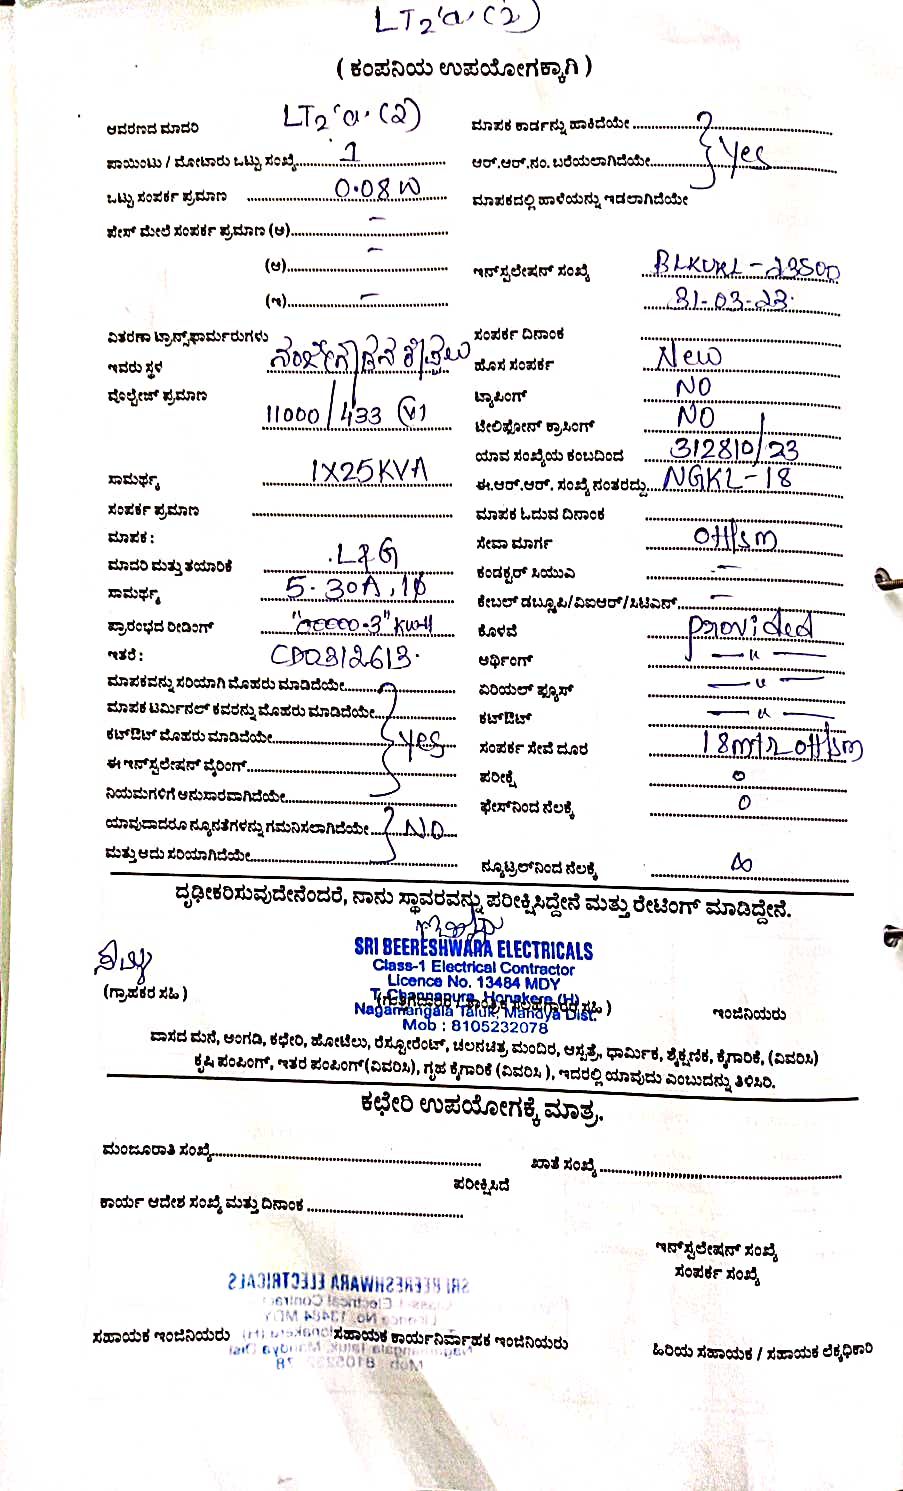 LT2 'a' (2)
( ಕಂಪನಿಯ ಉಪಯೋಗಕ್ಕಾಗಿ )
ಆವರಣದ ಮಾದರಿ LT2 'a' (2)
ಪಾಯಿಂಟು / ಮೋಟಾರು ಒಟ್ಟು ಸಂಖ್ಯೆ 1
ಒಟ್ಟು ಸಂಪರ್ಕ ಪ್ರಮಾಣ 0.08 W
ಫೇಸ್ ಮೇಲೆ ಸಂಪರ್ಕ ಪ್ರಮಾಣ (ಅ) –
(ಆ) –
(ಇ) –
ವಿತರಣಾ ಟ್ರಾನ್ಸ್‌ಫಾರ್ಮರುಗಳು
ಇವರು ಸ್ಥಳ
ವೋಲ್ಟೇಜ್ ಪ್ರಮಾಣ
11000/433 (V)
ಸಾಮರ್ಥ್ಯ 1X25KVA
ಸಂಪರ್ಕ ಪ್ರಮಾಣ
ಮಾಪಕ :
ಮಾದರಿ ಮತ್ತು ತಯಾರಿಕೆ L&G
ಸಾಮರ್ಥ್ಯ 5-30A, 1ϕ
ಪ್ರಾರಂಭದ ರೀಡಿಂಗ್ "00000.3" KWH
ಇತರೆ : CD0312613.
ಮಾಪಕವನ್ನು ಸರಿಯಾಗಿ ಮೊಹರು ಮಾಡಿದೆಯೇ
ಮಾಪಕ ಟರ್ಮಿನಲ್ ಕವರನ್ನು ಮೊಹರು ಮಾಡಿದೆಯೇ
ಕಟ್‌ಔಟ್ ಮೊಹರು ಮಾಡಿದೆಯೇ yes
ಈ ಇನ್‌ಸ್ಟಲೇಷನ್ ವೈರಿಂಗ್
ನಿಯಮಗಳಿಗೆ ಅನುಸಾರವಾಗಿದೆಯೇ
ಯಾವುದಾದರೂ ನ್ಯೂನತೆಗಳನ್ನು ಗಮನಿಸಲಾಗಿದೆಯೇ NO
ಮತ್ತು ಅದು ಸರಿಯಾಗಿದೆಯೇ
ಮಾಪಕ ಕಾರ್ಡನ್ನು ಹಾಕಿದೆಯೇ
ಆರ್.ಆರ್.ನಂ. ಬರೆಯಲಾಗಿದೆಯೇ Yes
ಮಾಪಕದಲ್ಲಿ ಹಾಳೆಯನ್ನು ಇಡಲಾಗಿದೆಯೇ
ಇನ್‌ಸ್ಟಲೇಷನ್ ಸಂಖ್ಯೆ BLKUKL-23500
31-03-23.
ಸಂಪರ್ಕ ದಿನಾಂಕ
ಹೊಸ ಸಂಪರ್ಕ New
ಟ್ಯಾಪಿಂಗ್ NO
ಟೇಲಿಫೋನ್ ಕ್ರಾಸಿಂಗ್ NO
ಯಾವ ಸಂಖ್ಯೆಯ ಕಂಬದಿಂದ 312810/23
ಈ.ಆರ್.ಆರ್. ಸಂಖ್ಯೆ ನಂತರದ್ದು NGKL-18
ಮಾಪಕ ಓದುವ ದಿನಾಂಕ
ಸೇವಾ ಮಾರ್ಗ OH/sm
ಕಂಡಕ್ಟರ್ ಸಿಯುಎ –
ಕೇಬಲ್ ಡಬ್ಲ್ಯೂಪಿ/ವಿಐಆರ್/ಸಿಟಿಎಸ್ –
ಕೊಳವೆ provided
ಅರ್ಥಿಂಗ್ — u —
ಏರಿಯಲ್ ಫ್ಯೂಸ್ — u —
ಕಟ್‌ಔಟ್ — u —
ಸಂಪರ್ಕ ಸೇವೆ ದೂರ 18mtr OH/sm
ಪರೀಕ್ಷೆ 0
ಫೇಸ್‌ನಿಂದ ನೆಲಕ್ಕೆ 0
ನ್ಯೂಟ್ರಲ್‌ನಿಂದ ನೆಲಕ್ಕೆ
ದೃಢೀಕರಿಸುವುದೇನೆಂದರೆ, ನಾನು ಸ್ಥಾವರವನ್ನು ಪರೀಕ್ಷಿಸಿದ್ದೇನೆ ಮತ್ತು ರೇಟಿಂಗ್ ಮಾಡಿದ್ದೇನೆ.
SRI BEERESHWARA ELECTRICALS
Class-1 Electrical Contractor
Licence No. 13484 MDY
T. Channapura, Honakere (H)
Nagamangala Taluk, Mandya Dist.
Mob : 8105232078
(ಗ್ರಾಹಕರ ಸಹಿ )
ಇಂಜಿನಿಯರು
ವಾಸದ ಮನೆ, ಅಂಗಡಿ, ಕಛೇರಿ, ಹೋಟೆಲು, ರೆಸ್ಟೋರೆಂಟ್, ಚಲನಚಿತ್ರ ಮಂದಿರ, ಆಸ್ಪತ್ರೆ, ಧಾರ್ಮಿಕ, ಶೈಕ್ಷಣಿಕ, ಕೈಗಾರಿಕೆ, (ವಿವರಿಸಿ)
ಕೃಷಿ ಪಂಪಿಂಗ್, ಇತರ ಪಂಪಿಂಗ್(ವಿವರಿಸಿ), ಗೃಹ ಕೈಗಾರಿಕೆ (ವಿವರಿಸಿ ), ಇದರಲ್ಲಿ ಯಾವುದು ಎಂಬುದನ್ನು ತಿಳಿಸಿರಿ.
ಕಛೇರಿ ಉಪಯೋಗಕ್ಕೆ ಮಾತ್ರ.
ಮಂಜೂರಾತಿ ಸಂಖ್ಯೆ
ಖಾತೆ ಸಂಖ್ಯೆ
ಪರೀಕ್ಷಿಸಿದೆ
ಕಾರ್ಯ ಆದೇಶ ಸಂಖ್ಯೆ ಮತ್ತು ದಿನಾಂಕ
ಇನ್‌ಸ್ಟಲೇಷನ್ ಸಂಖ್ಯೆ
ಸಂಪರ್ಕ ಸಂಖ್ಯೆ
ಸಹಾಯಕ ಇಂಜಿನಿಯರು
ಸಹಾಯಕ ಕಾರ್ಯನಿರ್ವಾಹಕ ಇಂಜಿನಿಯರು
ಹಿರಿಯ ಸಹಾಯಕ / ಸಹಾಯಕ ಲೆಕ್ಕಾಧಿಕಾರಿ